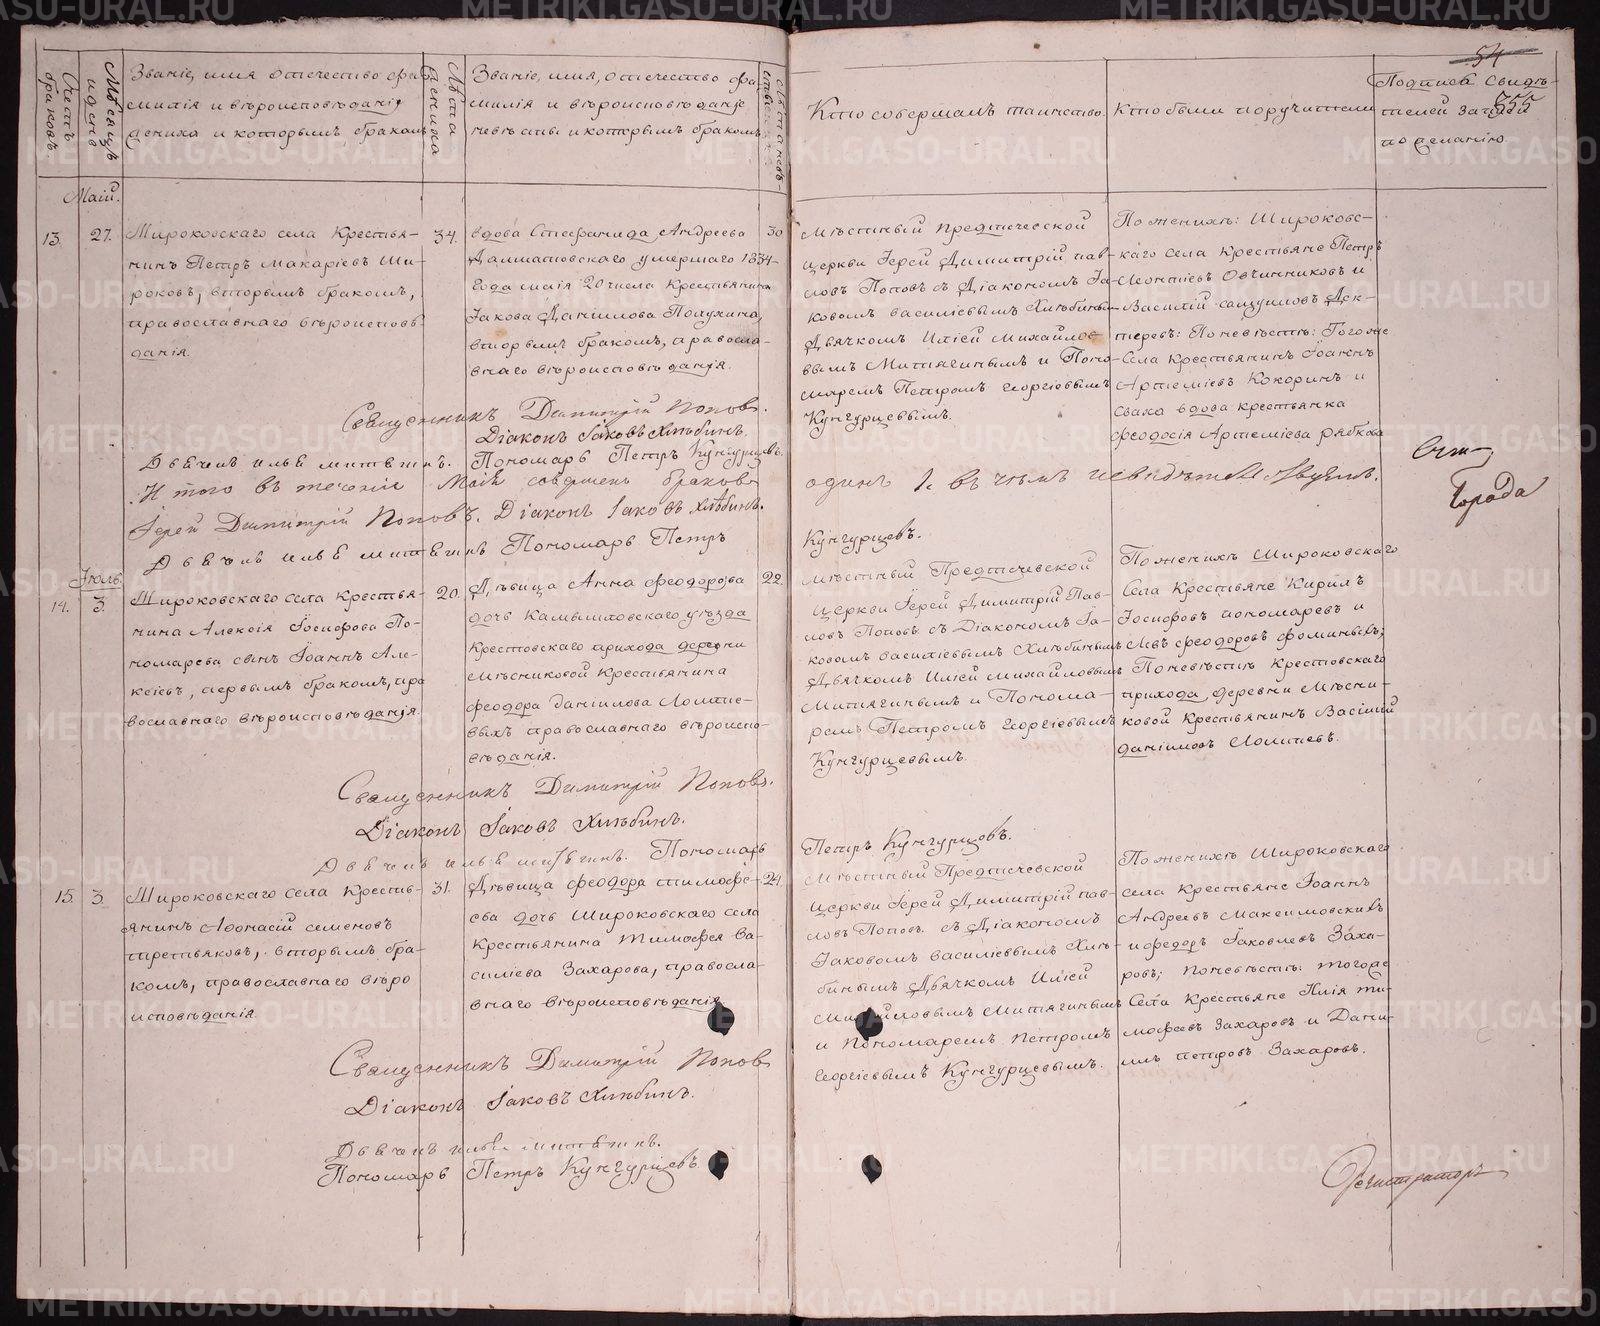 54
355
Счетъ браковъ.
Мѣсяцъ и день
Званіе, имя отечество фа-
милія и вѣроисповѣданія
жениха и которымъ бракомъ
Лѣта жениха
Званіе, имя, отечество фа-
милія и вѣроисповѣданіе
невѣсты и которымъ бракомъ
Лѣта невѣ-
Кто совершалъ таинство.
Кто были поручители
Подписа свидѣ-
телей записи
по желанію.
Маій.
13.
27.
Широковскаго села Крестья-
нинъ Петръ Макаріевъ Ши-
роковъ, вторымъ бракомъ,
православнаго вѣроисповѣ-
данія.
34.
вдова Стефанида Андреева
Далматовскаго умершаго 1834-
года маія 20 числа Крестьянина
Іакова Даніилова Полухина,
вторымъ бракомъ, правосла-
внаго вѣроисповѣданія.
30
Мѣстный Предтечевской
церкви Іерей Димитрій Пав-
ловъ Поповъ съ Діакономъ Іа-
ковомъ Василіевымъ Хлѣбинымъ
Дьячкомъ Иліей Михайло-
вымъ Митягинымъ и Поно-
маремъ Петромъ Георгіевымъ
Кунгурцевымъ.
По женихѣ: Широковс-
каго села Крестьяне Петръ
Леонтіевъ Овчинниковъ и
Василій
По невѣстѣ: Тогоже
Села Крестьянинъ Іоаннъ
Артеміевъ Кокоринъ и
сваха вдова крестьянка
Феодосія Артеміева Рябкова
Священникъ Димитрій Поповъ.
Діаконъ Іаковъ Хлѣбинъ.
Дьячекъ Илья Митягинъ. Пономарь Петръ Кунгурцевъ.
Итого въ теченіи Маія совершенъ браковъ
одинъ 1. въ чемъ и свидѣтельствуемъ.
Іерей Димитрій Поповъ. Діаконъ Іаковъ Хлѣбинъ.
Дьячекъ Илья Митягинъ Пономарь Петръ
Кунгурцевъ.
Города
Іюль
14.
3.
Широковскаго села Крестья-
нина Алексія Іосифова По-
номарева сынъ Іоаннъ Але-
ксіевъ, первымъ бракомъ, пра
вославнаго вѣроисповѣданія.
20.
Дѣвица Анна Феодорова
дочь Камышловскаго уѣзда
Крестовскаго прихода деревни
Мѣсниковой Крестьянина
Феодора Даніилова Лопте-
выхъ православнаго вѣроиспо-
вѣданія.
22.
Мѣстный Предтечевской
Церкви Іерей Димитрій Пав-
ловъ Поповъ съ Діакономъ Іа-
ковомъ Василіевымъ Хлѣбинымъ
Дьячкомъ Иліей Михайловымъ
Митягинымъ и Понома-
ремъ Петромъ Георгіевымъ
Кунгурцевымъ.
По женихѣ Широковскаго
Села Крестьяне Кирилъ
Іосифовъ Пономаревъ и
Левъ Феодоровъ Фоминыхъ;
По невѣстѣ Крестовскаго
прихода, деревни Мѣсни-
ковой Крестьянинъ Василій
Даніиловъ
Священникъ Димитрій Поповъ.
Діаконъ Іаковъ Хлѣбинъ.
Дьячекъ Илья Митягинъ. Пономарь
Петръ Кунгурцовъ.
15.
3.
Широковскаго села Кресть-
янинъ Афонасій Семеновъ
Третьяковъ, вторымъ бра-
комъ, православнаго вѣро
исповѣданія.
31.
Дѣвица Феодора Тимофе-
ева дочь Широковскаго села
Крестьянина Тимофея Ва-
силіева Захарова, правосла-
внаго вѣроисповѣданія
24.
Мѣстный Предтечевской
Церкви Іерей Димитрій Пав-
ловъ Поповъ съ Діакономъ
Іаковомъ Василіевымъ Хлѣ-
бинымъ Дьячкомъ Иліей
Михайловымъ Митягинымъ
и Пономаремъ Петромъ
Георгіевымъ Кунгурцевымъ.
По женихѣ Широковскаго
села Крестьяне Іоаннъ
Андреевъ Максимовскихъ
и Федоръ Іаковлевъ Заха-
ровъ; по невѣстѣ: тогоже
Села Крестьяне Илія Ти-
мофеевъ Захаровъ и Дани-
илъ Петровъ Захаровъ.
Священникъ Димитрій Поповъ
Діаконъ Іаковъ Хлѣбинъ.
Дьячекъ Илья Митягинъ.
Пономарь Петръ Кунгурцевъ.
Регистраторъ
METRIKI.GASO-URAL.RU